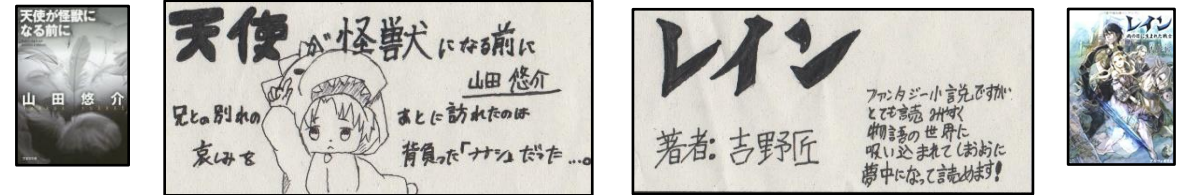 天使が怪獣に
なる前に
山田悠介
天使が怪獣になる前に
山田 悠介
兄との別れの あとに訪れたのは
哀しみを 背負った「ナナシ」だった…。
レイン
著者:吉野匠
ファンタジー小説ですが
とても読みやすく
物語の世界に
吸い込まれてしまうように
夢中になって読めます!
レイン
雨の日に生まれた戦士